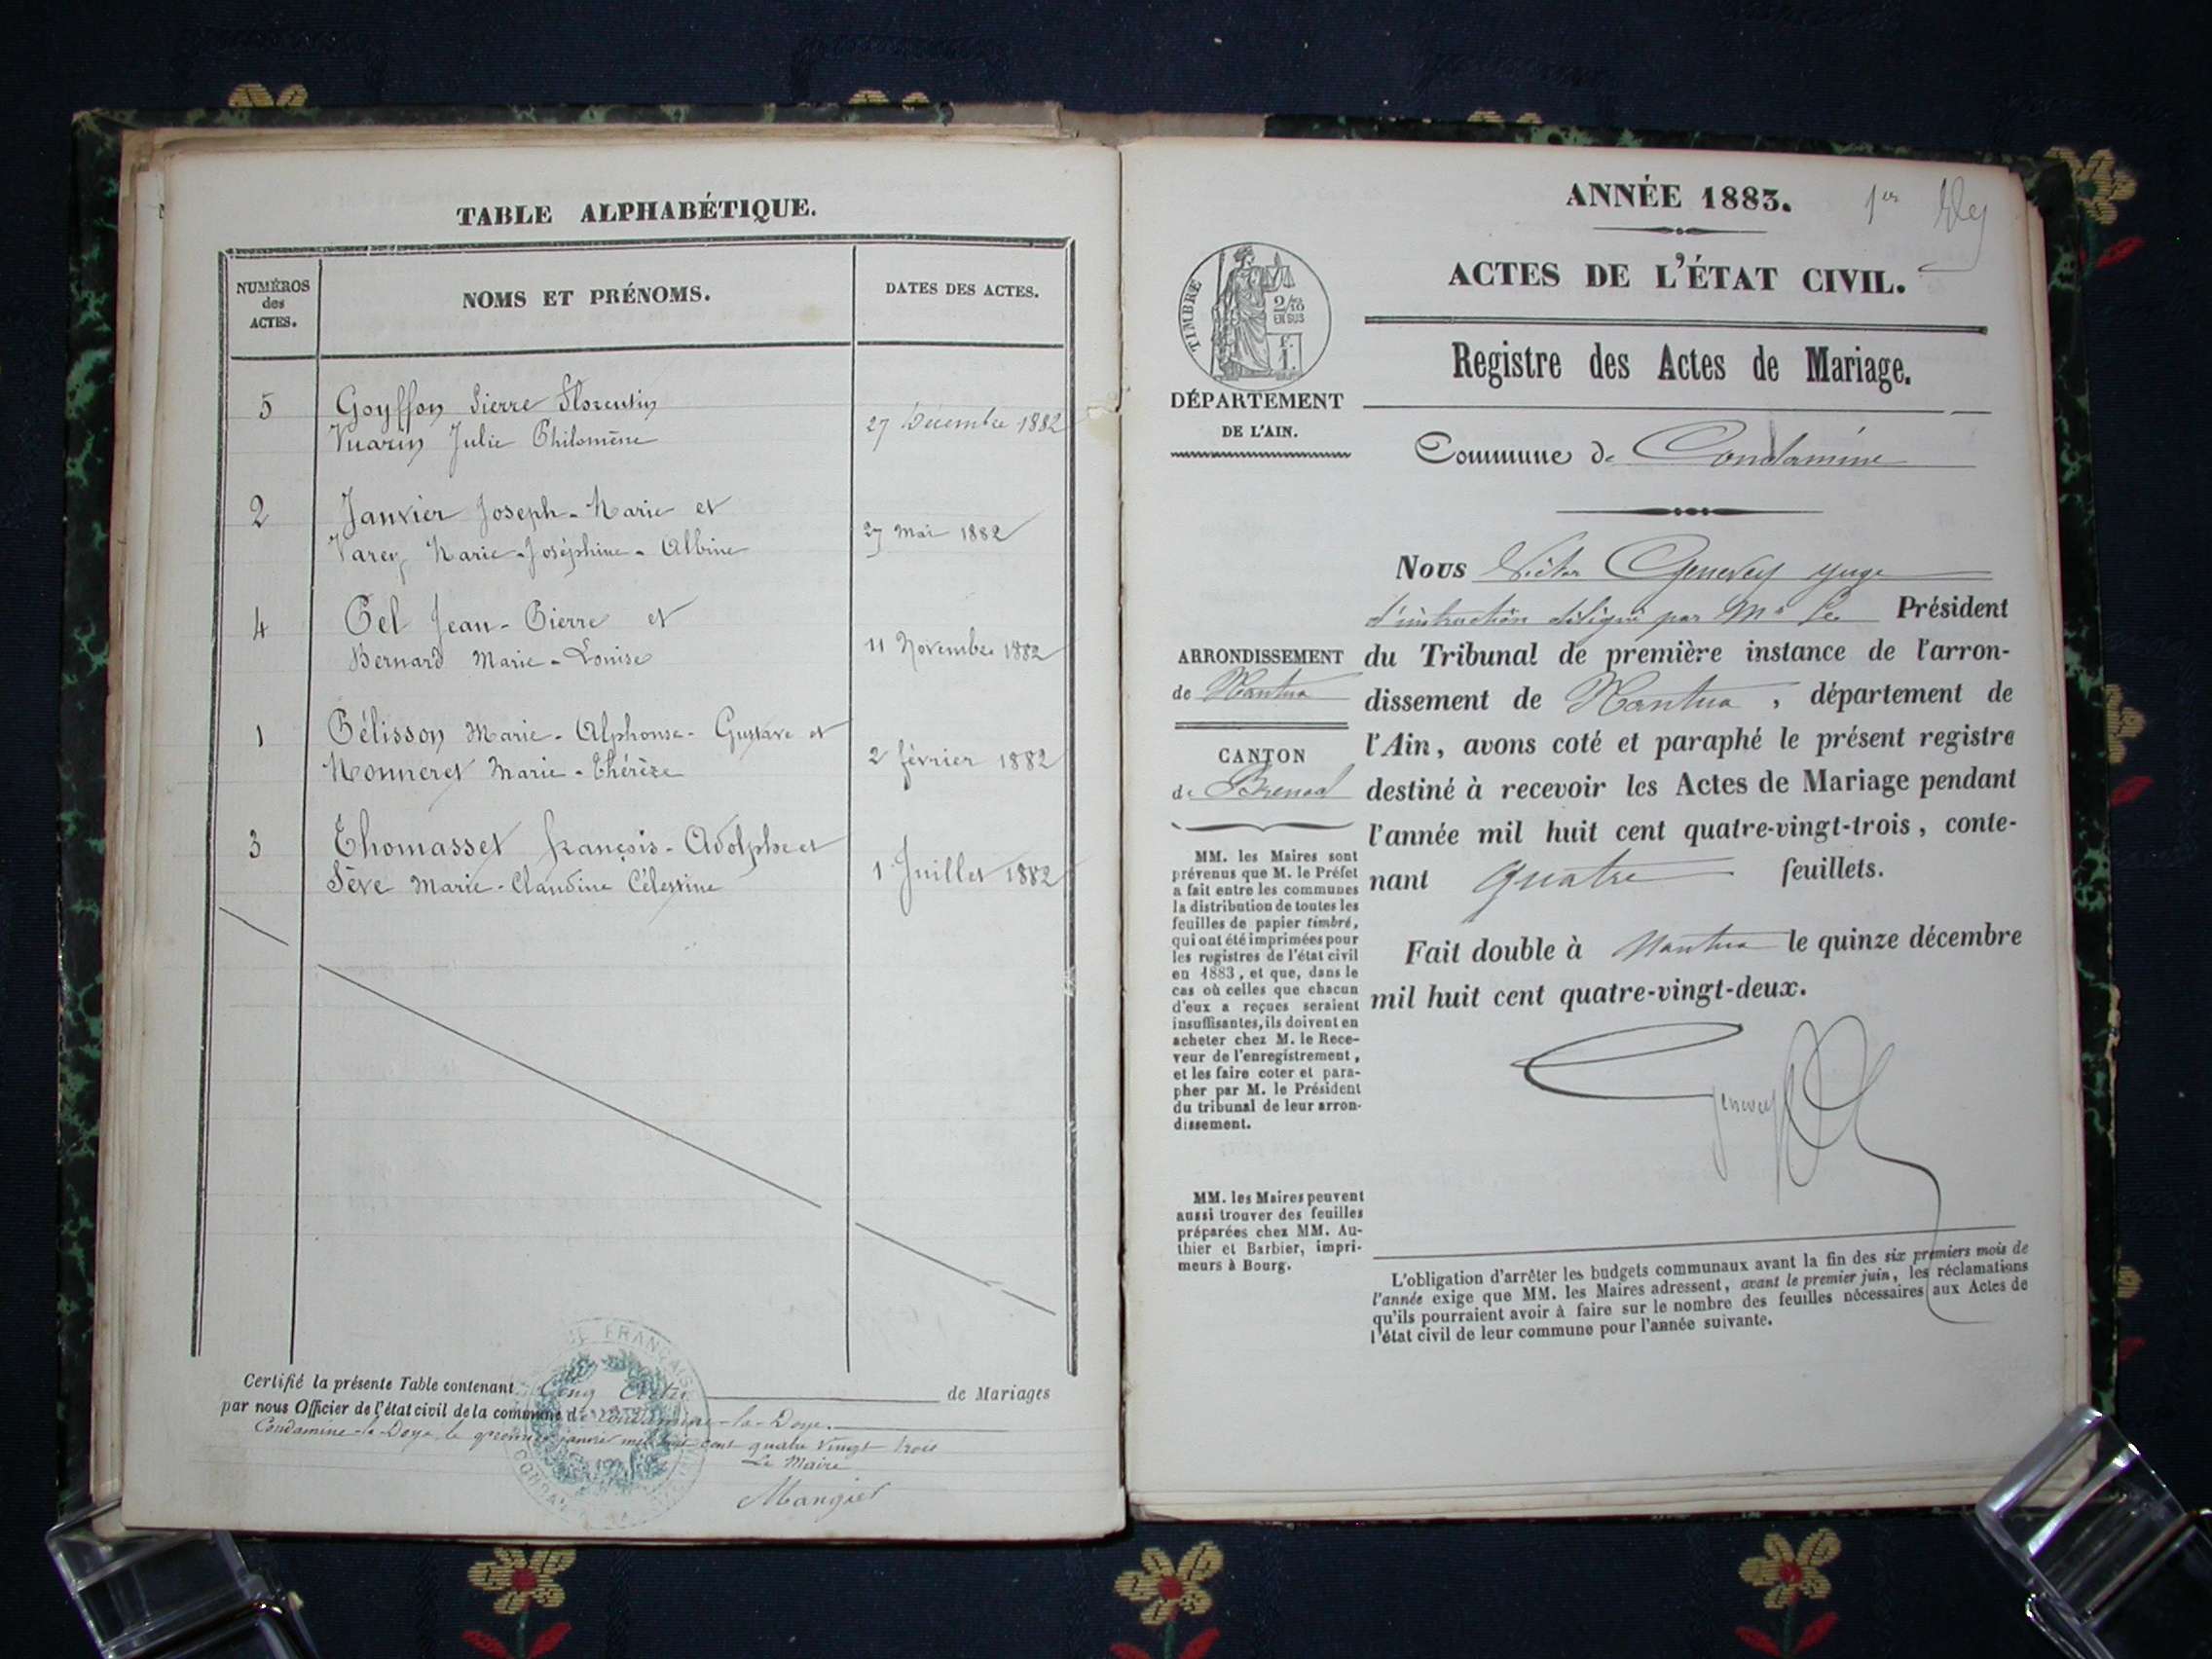 TABLE ALPHABÉTIQUE.
NUMÉROS
des
ACTES.
NOMS ET PRÉNOMS.
DATES DES ACTES.
5
Goyffon Pierre Florentin
Vuarin Julie Philomène
27 Décembre 1882
2
Janvier Joseph-Marie et
Varey Marie-Joséphine-Albine
27 Mai 1882
4
Pel Jean-Pierre et
Bernard Marie-Louise
11 Novembre 1882
1
Pélisson Marie-Alphonse-Gustave et
Monneret Marie-Thérèze
2 février 1882
3
Thomasset françois-Adolphe et
Sève Marie-Claudine Célestine
1 Juillet 1882
Certifié la présente Table contenant Cinq Actes de Mariages
par nous Officier de l'état civil de la commune de Condamine-la-Doye.
Condamine-la-Doye, le premier janvier mil huit cent quatre vingt trois
Le Maire
Mangier
ANNÉE 1883.
1er
ACTES DE L'ÉTAT CIVIL.
TIMBRE
2/10
EN SUS
f.
1.
Registre des Actes de Mariage.
DÉPARTEMENT
DE L'AIN.
Commune de Condamine
Nous Victor Genevey juge
d'instruction délégué par Mr le Président
du Tribunal de première instance de l'arron-
dissement de Nantua, département de
l'Ain, avons coté et paraphé le présent registre
destiné à recevoir les Actes de Mariage pendant
l'année mil huit cent quatre-vingt-trois, conte-
nant quatre feuillets.
Fait double à Nantua le quinze décembre
mil huit cent quatre-vingt-deux.
Genevey
ARRONDISSEMENT
de Nantua
CANTON
de Brenod
MM. les Maires sont
prévenus que M. le Préfet
a fait entre les communes
la distribution de toutes les
feuilles de papier timbré,
qui ont été imprimées pour
les registres de l'état civil
en 1883, et que, dans le
cas où celles que chacun
d'eux a reçues seraient
insuffisantes, ils doivent en
acheter chez M. le Rece-
veur de l'enregistrement,
et les faire coter et para-
pher par M. le Président
du tribunal de leur arron-
dissement.
MM. les Maires peuvent
aussi trouver des feuilles
préparées chez MM. Au-
thier et Barbier, impri-
meurs à Bourg.
L'obligation d'arrêter les budgets communaux avant la fin des six premiers mois de
l'année exige que MM. les Maires adressent, avant le premier juin, les réclamations
qu'ils pourraient avoir à faire sur le nombre des feuilles nécessaires aux Actes de
l'état civil de leur commune pour l'année suivante.